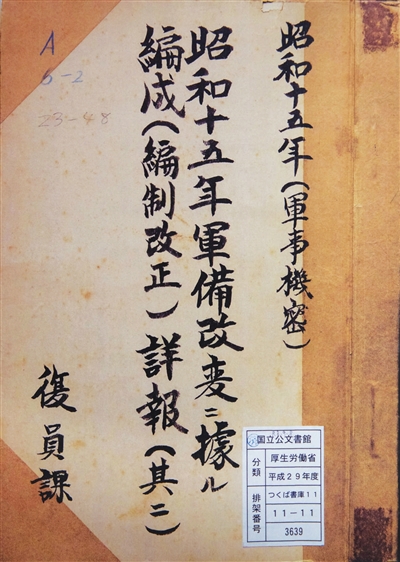 昭和十五年（軍事機密）
昭和十五年軍備改変ニ據ル
編成（編制改正）詳報（其二）
復員課
A
5-2
23-48
国立公文書館
分類
厚生労働省
平成29年度
つくば書庫11
排架番号
11-11
3639